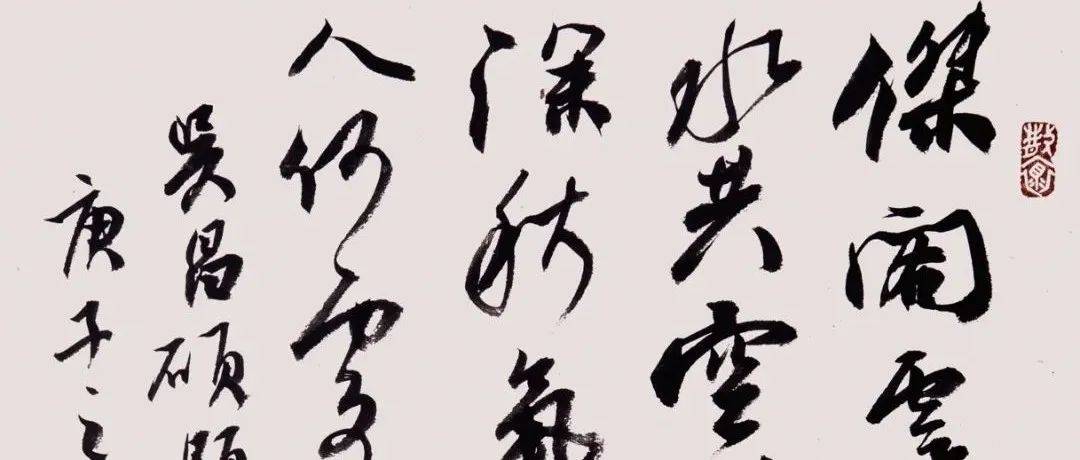 傑閣
水共空
深秋氣
人何
吳昌碩
庚子之